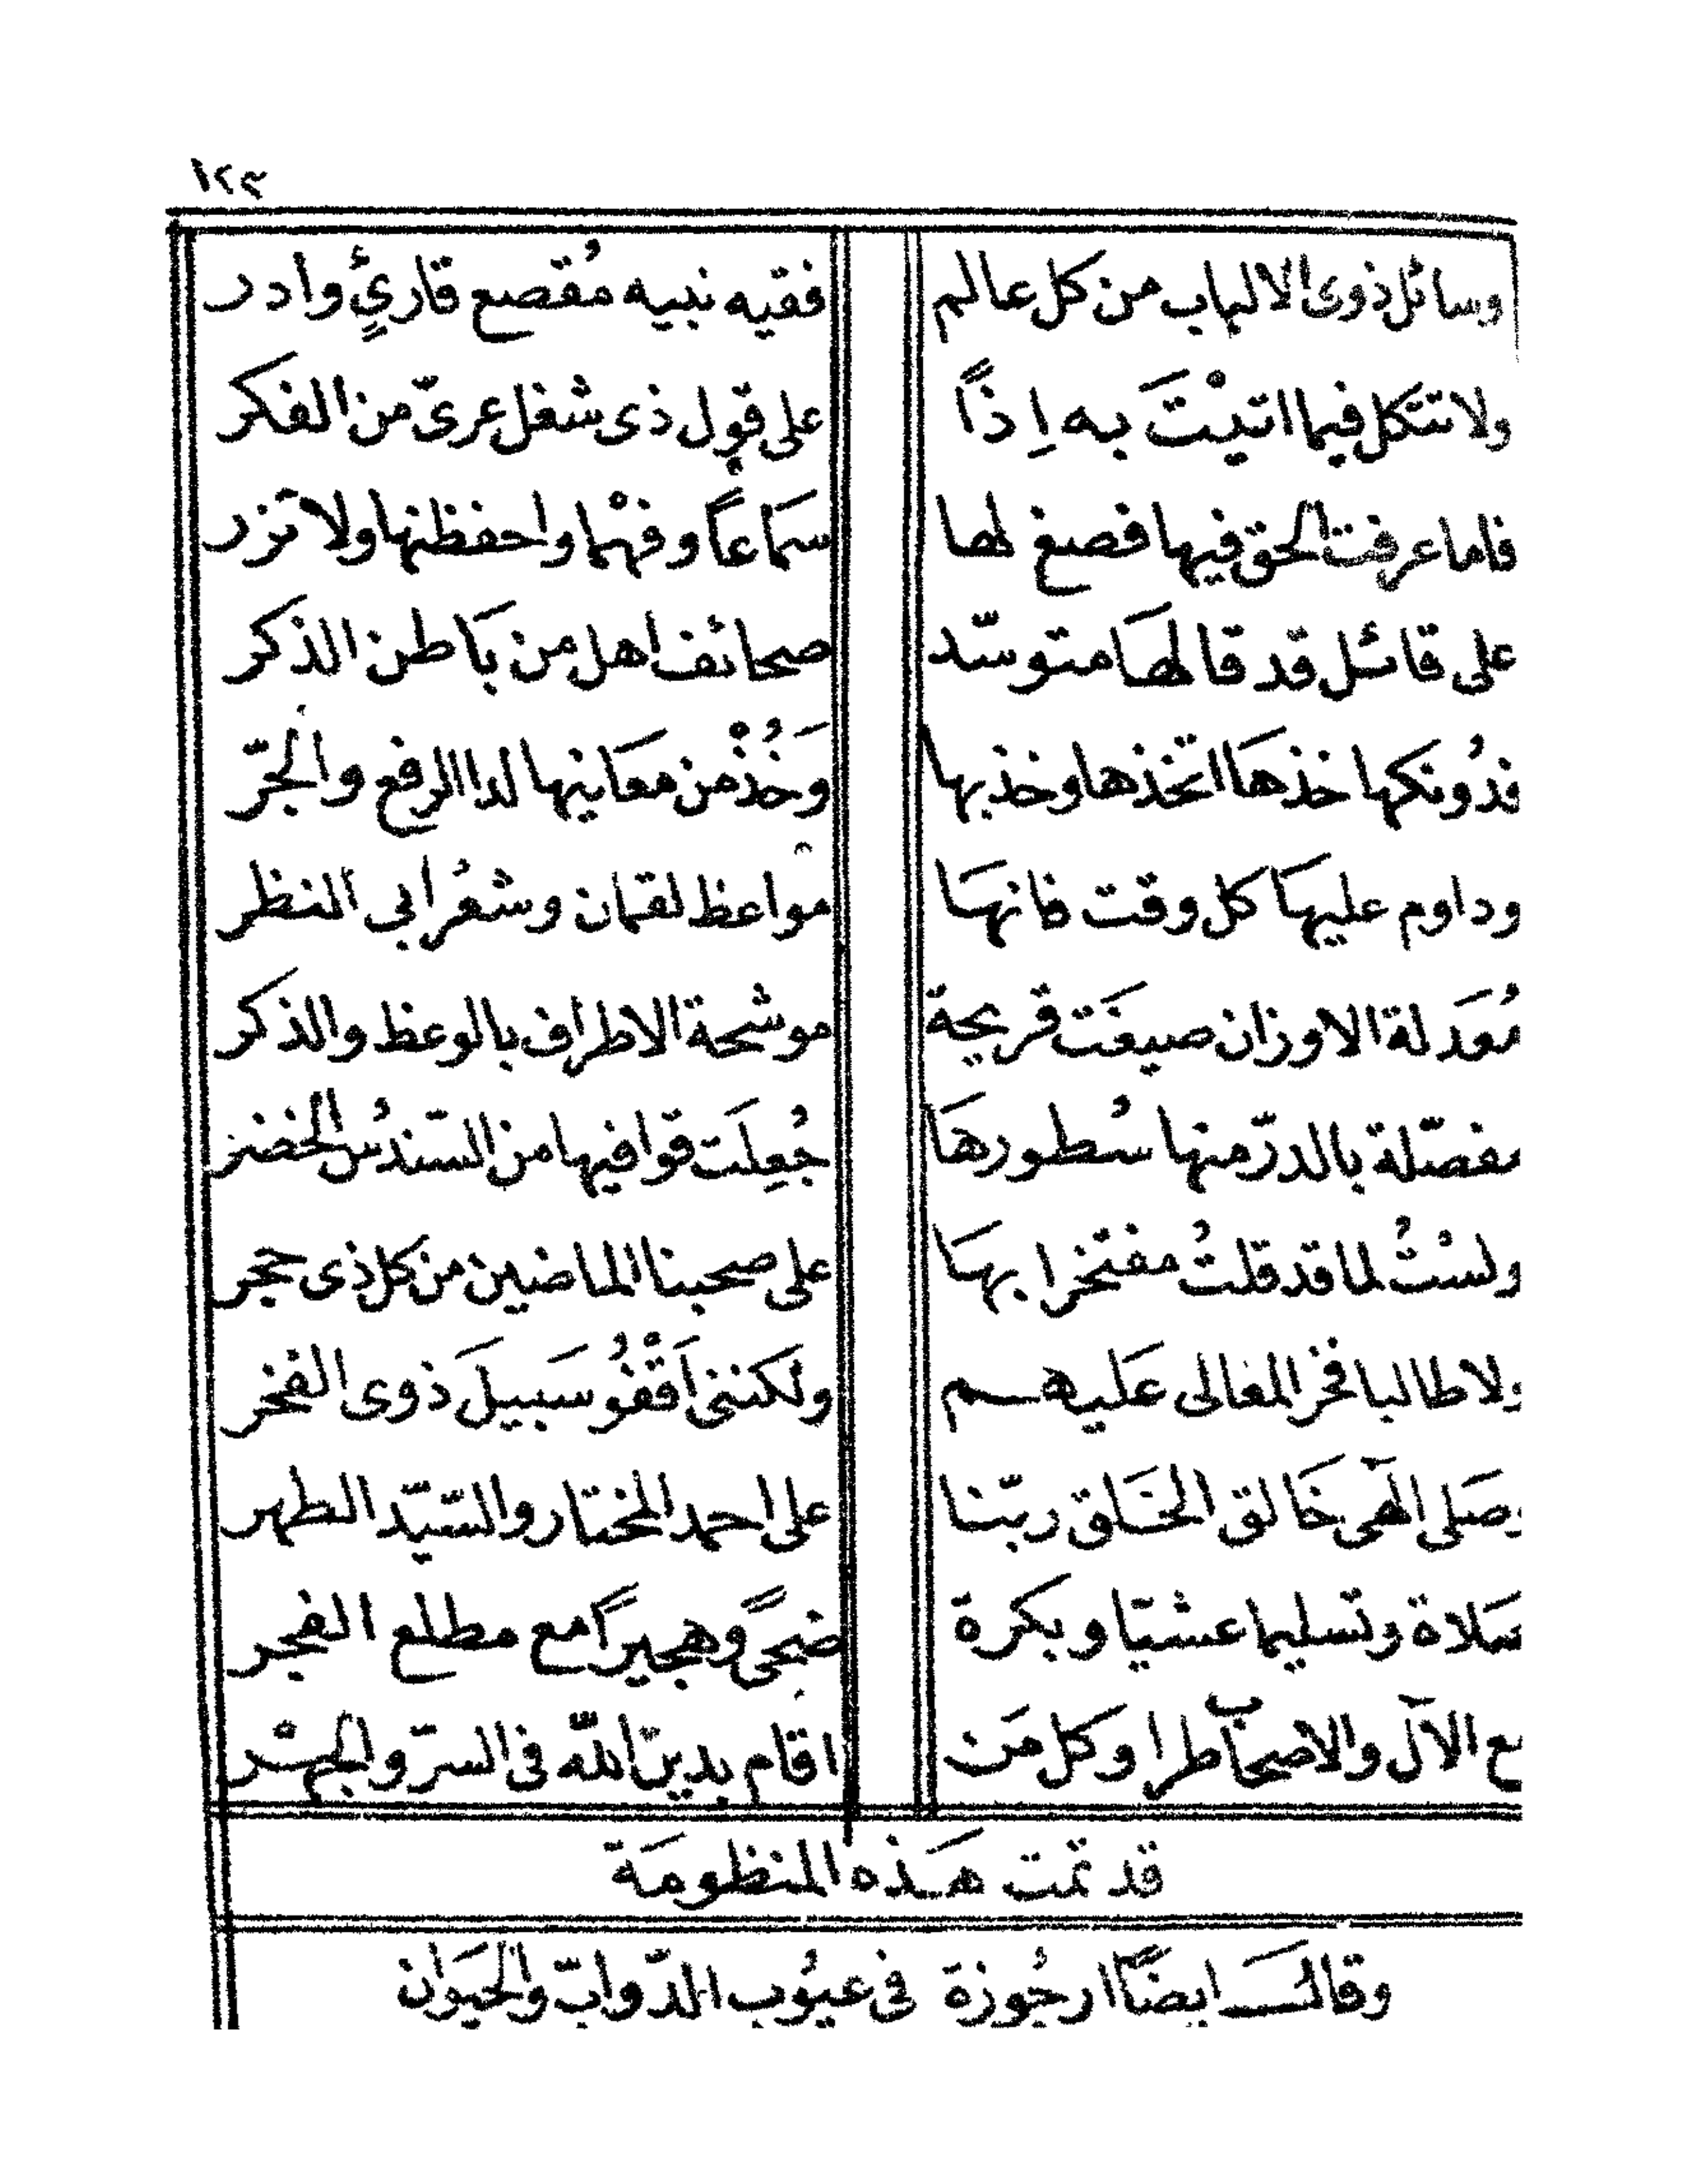 ١٢٣
وسائل ذوى الالباب من كل عالم فقيه نبيه مُقصع قارئٍ وادر
ولا تتكل فيما اتيْتَ به اِذاً على قول ذى شغل عرىّ من الفكر
فاما عرفت الحق فيها فصغ لها سَمَاعاً وفهْما واحفظنها ولا تزر
على قائل قد قالهَا متوسّد صحائف اهل من بَاطن الذكر
فدُونكها خذهَا اتخذها وخذ بها وَخُذْ من معَانيها لدا الرفع والجّر
وداوم عليهَا كل وقت فانهَا مواعظ لقمان وشعُر ابى النظر
مُعَدلة الاوزان صيغَت قريحة موشحة الاطراف بالوعظ والذكر
مفصّلة بالدرّ منها سُطورهَا جُعِلَت قوافيها من السّندُس الخضر
ولسْتُ لما قد قلتُ مفتخرا بهَا على صحبنا الماضين من كل ذى حجر
ولا طالبا فخر المغالى عَليهم ولكننى اَقْفُو سَبيلَ ذوى الفخر
وصَلى الٓهى خَالق الخَلق ربّنا على احمد المختار والسّيّد الطهر
صَلاة وتسليما عشيّا وبكرة ضحىً وهجيراً مع مطلع الفجر
مع الآل والاصحاب طرا وكل مَن اقام بدين اللّه فى السرّ والجهْر
قد تمت هَذه المنظومَة
وقالَ ايضاً ارجُوزة فى عيُوب الدّوابّ والحيَوان